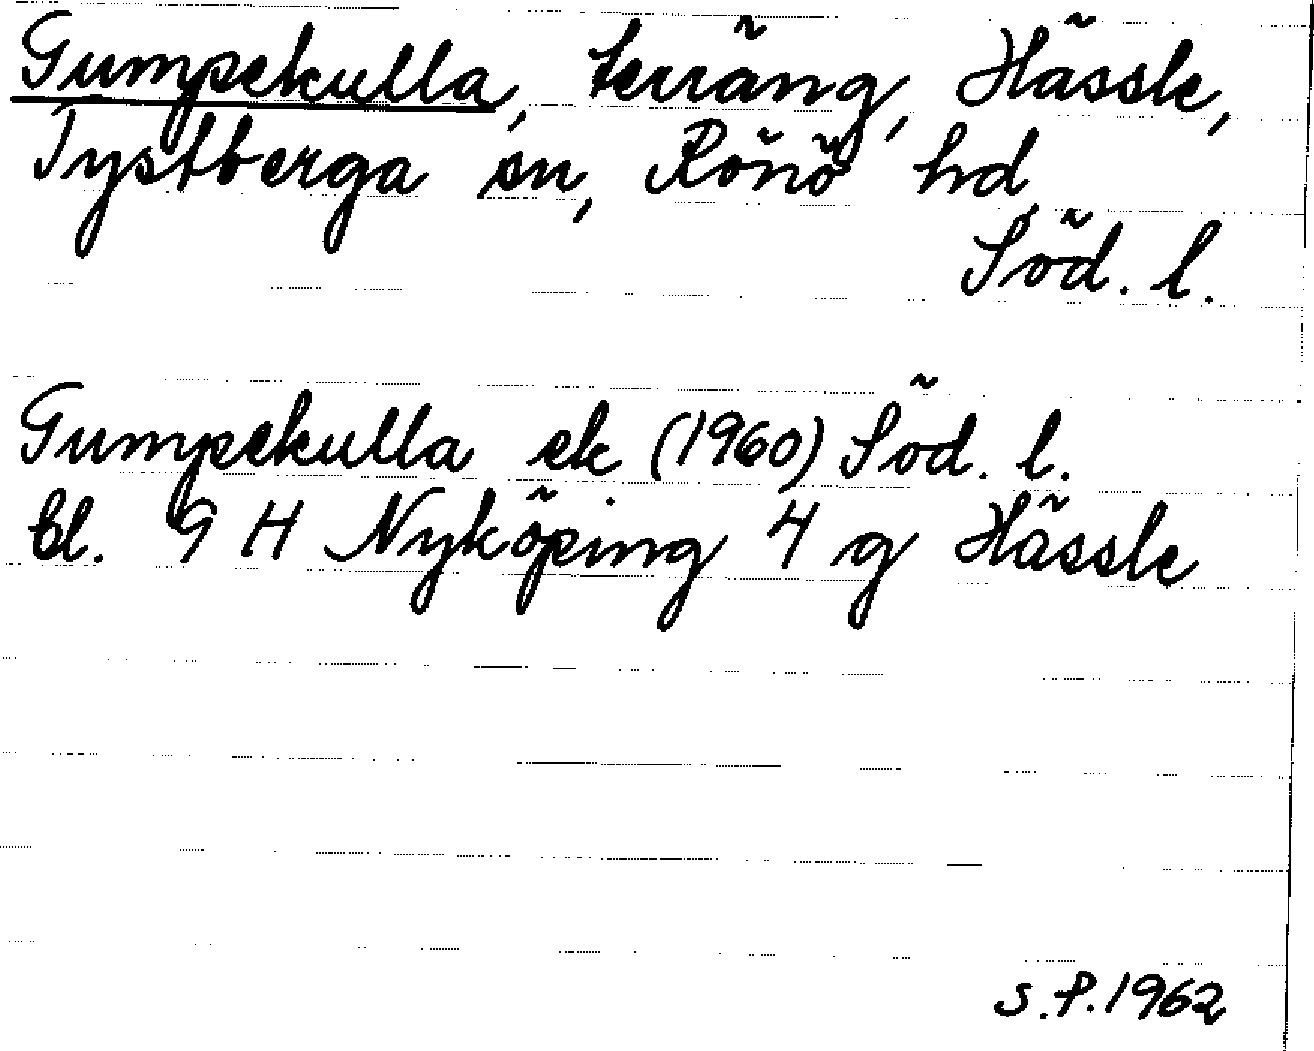 Gumpekulla, terräng, Hässle,
Tystberga sn, Rönö hd
Söd. l.
Gumpekulla ek (1960) Söd. l.
bl. 9 H Nyköping 4 g Hässle
S.P. 1962